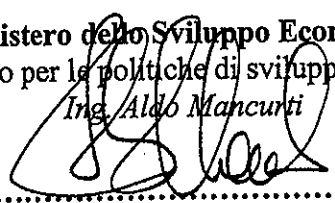 istero dello Sviluppo Econ
o per le politiche di svilupp
Ing. Aldo Mancurti